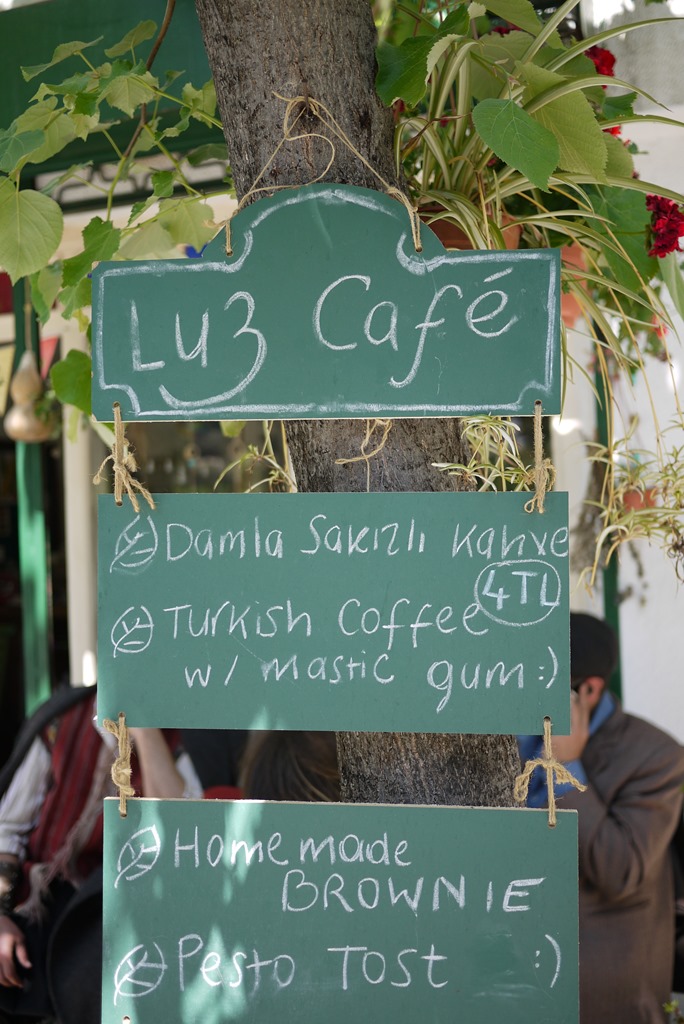 Luz Café
Damla Sakızlı Kahve
4TL
Turkish Coffee
w/ mastic gum:)
Homemade
BROWNIE
Pesto Tost :)